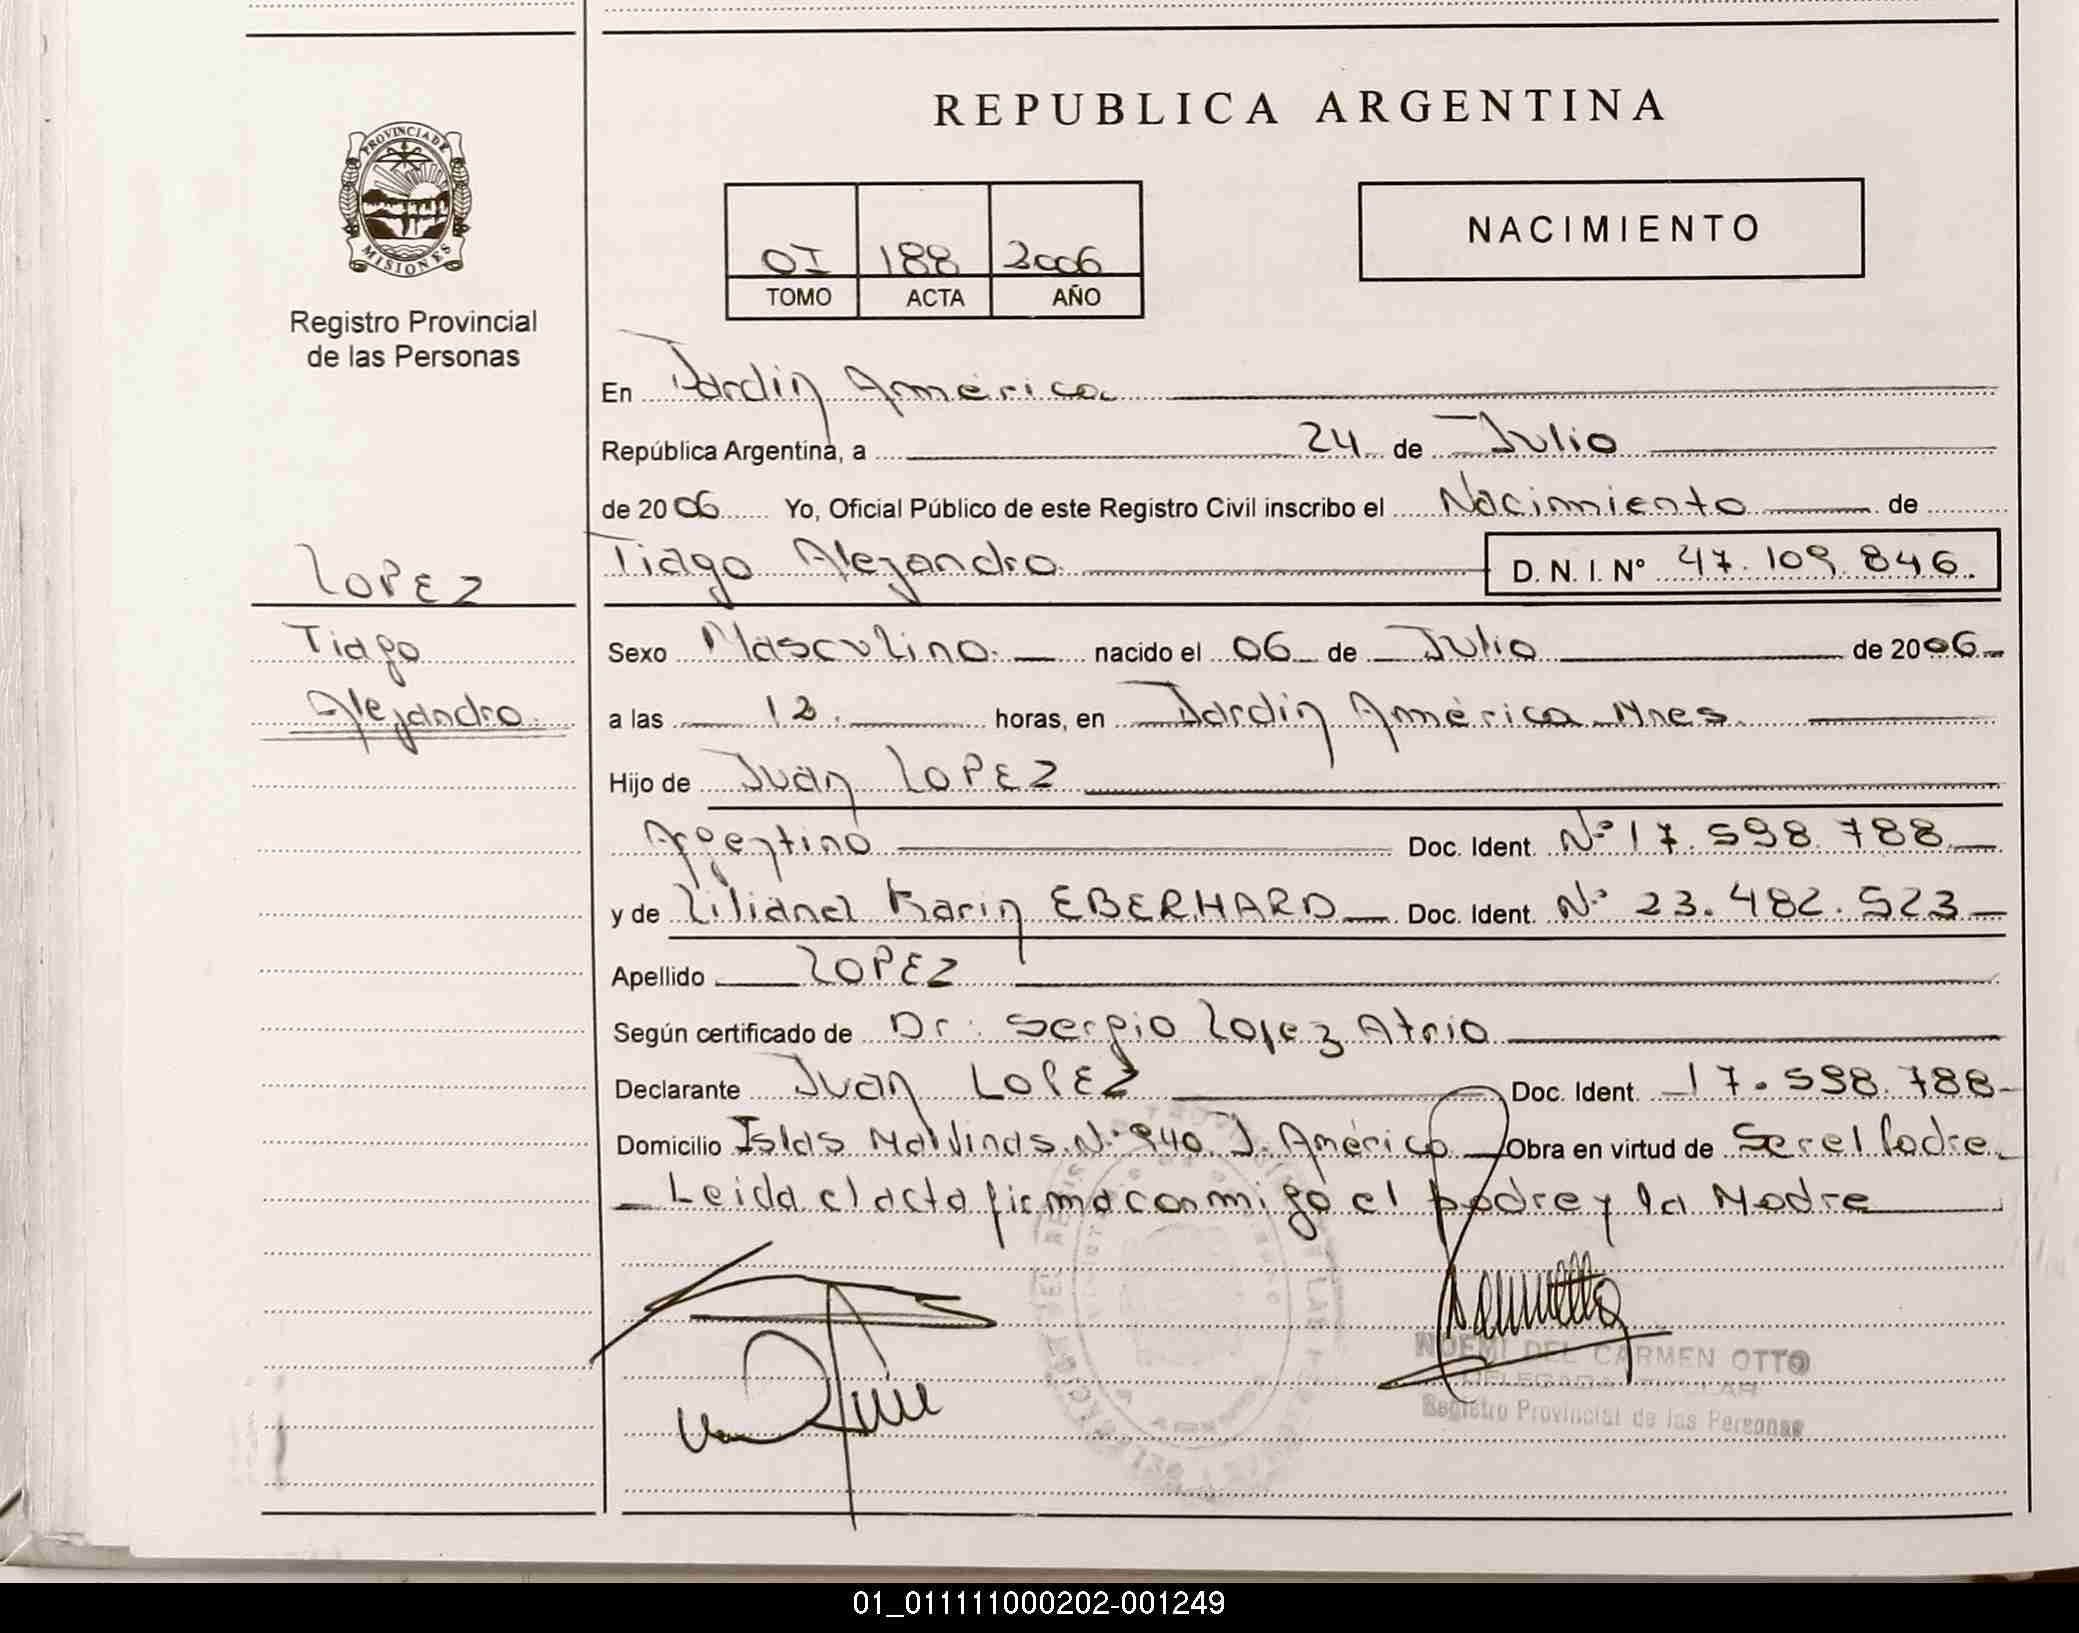 REPUBLICA ARGENTINA
PROVINCIA DE
MISIONES
Registro Provincial
de las Personas
OI 188 2006
TOMO ACTA AÑO
NACIMIENTO
En Jardin América
República Argentina, a 24 de Julio
de 2006 Yo, Oficial Público de este Registro Civil inscribo el Nacimiento de
LOPEZ
Tiago Alejandro D. N. I. Nº 47.109.846.
Tiago
Alejandro.
Sexo Masculino. nacido el 06 de Julio de 2006.
a las 12. horas, en Jardin América Mnes.
Hijo de Juan LOPEZ
Argentino Doc. Ident. Nº 17.598.788
y de Liliana Karin EBERHARD Doc. Ident. Nº 23.482.523
Apellido LOPEZ
Según certificado de Dr: Sergio Lopez Atrio
Declarante Juan LOPEZ Doc. Ident. 17.598.788
Domicilio Islas Malvinas Nº 940 J. América Obra en virtud de Ser el Padre
Leida el acta firma conmigo el padre y la Madre
NOEMI DEL CARMEN OTTO
DELEGADA TITULAR
Registro Provincial de las Personas
01_011111000202-001249